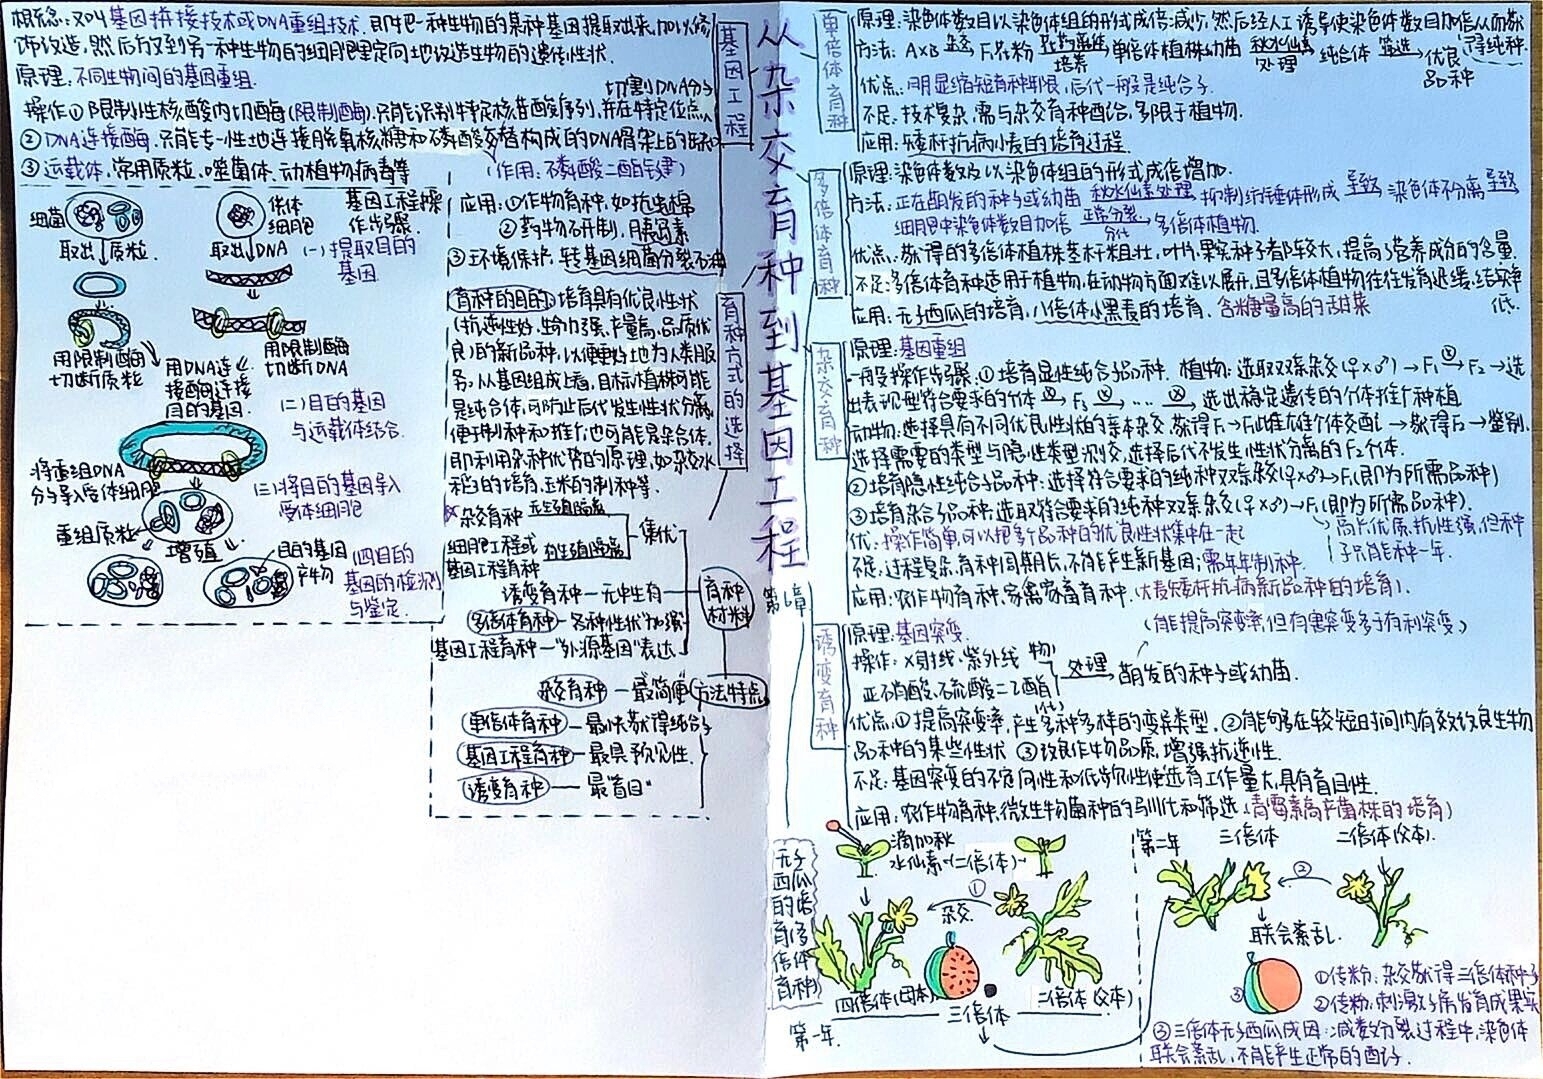 从杂交育种到基因工程
第6章
基因工程
概念：又叫基因拼接技术或DNA重组技术.即把一种生物的某种基因提取出来,加以修
饰改造,然后放到另一种生物的细胞里定向地改造生物的遗传性状.
原理:不同生物间的基因重组.
操作①限制性核酸内切酶(限制酶).只能识别特定核苷酸序列,并在特定位点
切割DNA分子
②DNA连接酶.只能专一性地连接脱氧核糖和磷酸交替构成的DNA骨架上的缺口
(作用:磷酸二酯键)
③运载体,常用质粒、噬菌体、动植物病毒等
细菌
供体
细胞
基因工程操
作步骤.
取出质粒.
取出DNA
(一)提取目的
基因
用限制酶
切断质粒
用DNA连
接酶连接
目的基因.
用限制酶
切断DNA
(二)目的基因
与运载体结合.
将重组DNA
分子导入受体细胞
(三)将目的基因导入
受体细胞
重组质粒
增殖
目的基因
产物
四目的
基因的检测
与鉴定.
应用:①作物育种,如抗虫棉
②药物研制,胰岛素
③环境保护:转基因细菌分裂石油
育种方式的选择
育种的目的:培育具有优良性状
(抗逆性好,生命力强、产量高、品质优
良)的新品种,以便更好地为人类服
务,从基因组成上看,目标植株可能
是纯合体,可防止后代发生性状分离,
便于制种和推广,也可能是杂合体.
即利用杂种优势的原理,如杂交水
稻的培育、玉米的制种等.
育种
材料
杂交育种 无生殖隔离
细胞工程或
基因工程育种 有生殖隔离
集优
诱变育种—无中生有
多倍体育种—各种性状"加强"
基因工程育种—"外源基因"表达
方法特点
杂交育种—最简便
单倍体育种—最快获得纯合子
基因工程育种—最具预见性.
诱变育种—最盲目"
单倍体育种
原理:染色体数目以染色体组的形式成倍减少,然后经人工诱导使染色体数目加倍从而获
得纯种.
方法: A×B 杂交 F₁花粉 花药离体 培养 单倍体植株幼苗 秋水仙素 处理 纯合体 筛选 优良
品种
优点:明显缩短育种年限,后代一般是纯合子.
不足:技术复杂,需与杂交育种配合,多限于植物.
应用:矮秆抗病小麦的培育过程.
多倍体育种
原理:染色体数及以染色体组的形式成倍增加.
方法:正在萌发的种子或幼苗 秋水仙素处理 抑制纺锤体形成 导致 染色体不分离 导致
细胞中染色体数目加倍 正常分裂 分化 多倍体植物.
优点:获得的多倍体植株茎杆粗壮,叶片果实种子都较大,提高了营养成分的含量.
不足:多倍体育种适用于植物,在动物方面难以展开,且多倍体植物往往发育迟缓,结实率
低.
应用:无子西瓜的培育,八倍体小黑麦的培育.含米糖量高的甜菜
杂交育种
原理:基因重组
一般操作步骤:①培育显性纯合子品种.植物:选取双亲杂交(♀×♂)→F₁⊗→F₂→选
出表现型符合要求的个体⊗→F₃⊗→…⊗→选出稳定遗传的个体推广种植
动物:选择具有不同优良性状的亲本杂交.获得F₁→F₁雌雄个体交配→获得F₂→鉴别.
选择需要的类型与隐性类型测交,选择后代不发生性状分离的F₂个体.
②培育隐性纯合子品种:选择符合要求的纯种双亲杂交(♀×♂)→F₁(即为所需品种)
③培育杂合子品种,选取符合要求的纯种双亲杂交(♀×♂)→F₁(即为所需品种).
高产优质、抗性强,但种
子只能种一年.
优:操作简单,可以把多个品种的优良性状集中在一起
不足,过程复杂,育种周期长,不能产生新基因;需年年制种.
应用:农作物育种,家禽家畜育种.(大麦矮杆抗病新品种的培育).
诱变育种
原理:基因突变.
(能提高突变率,但有害突变多于有利突变)
操作:X射线、紫外线 物
亚硝酸、硫酸二乙酯 处理 萌发的种子或幼苗.
优点①提高突变率,产生多种多样的变异类型,②能够在较短时间内有效改良生物
品种的某些性状 ③改良作物品质,增强抗逆性.
不足:基因突变的不定向性和低频性使选育工作量大,具有盲目性.
应用:农作物育种,微生物菌种的驯化和筛选.(青霉素高产菌株的培育)
无子西瓜的培育(多倍体育种)
滴加秋
水仙素(二倍体)
①
杂交
四倍体(母本)
二倍体(父本)
三倍体
第一年
第二年
三倍体
二倍体(父本).
②
联会紊乱.
③
①传粉:杂交获得三倍体种子
②传粉:刺激子房发育成果实
③三倍体无子西瓜成因:减数分裂过程中,染色体
联会紊乱,不能产生正常的配子.